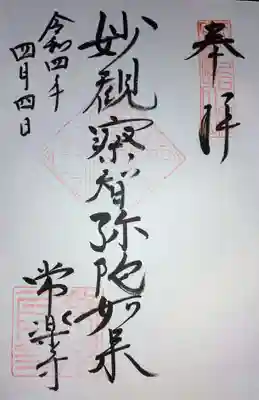 奉拝
妙觀察智弥陀如来
常楽寺
令和四年
四月四日